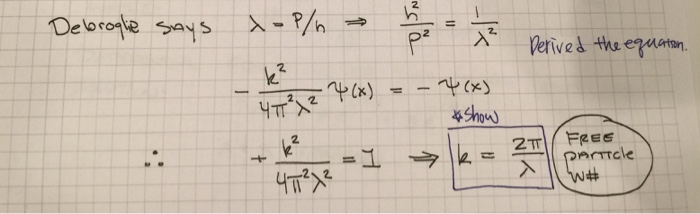 Debroglie says λ = P/h ⇒ h²/P² = 1/λ² Derived the equation.
- k²/4π²λ² ψ(x) = - ψ(x)
* Show
∴ + k²/4π²λ² = 1 ⇒ k = 2π/λ FREE PARTICLE W#